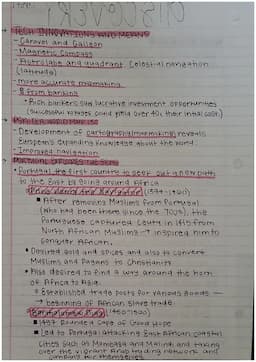 TECH INNOVATIONS AND MEANS
- Caravel and Galleon
- Magnetic Compass
- Astrolabe and quadrant (celestial navigation
(latitude)
- more accurate mapmaking
- $ from banking
• Rich bankers saw lucrative investment opportunities
(successful voyages could yield over 40x their initial cost)
- Development of cartography/mapmaking reveals
European's expanding knowledge about the world
- Improved navigation
PORTUGAL EXPLORES THE SEAS
• Portugal the first country to seek out another path
to the East by going around Africa
Prince Henry the Navigator (1394-1460)
■ After removing Muslims from Portugal
(who had been there since the 700's), the
Portuguese captured Ceuta in 1415 from
North African Muslims → inspired him to
conquer African.
- Desired gold and spices and also to convert
Muslims and Pagans to Christianity
• Also desired to find a way around the horn
of Africa to Asia.
• Established trade posts for various goods
→ beginning of African Slave trade.
Bartholomew Dias (1450-1500)
■ 1487 Rounded Cape of Good Hope
■ Led to Portugal attacking East African coastal
cities such as Mombasa and Malindi and taking
over the vibrant Arab trading network and